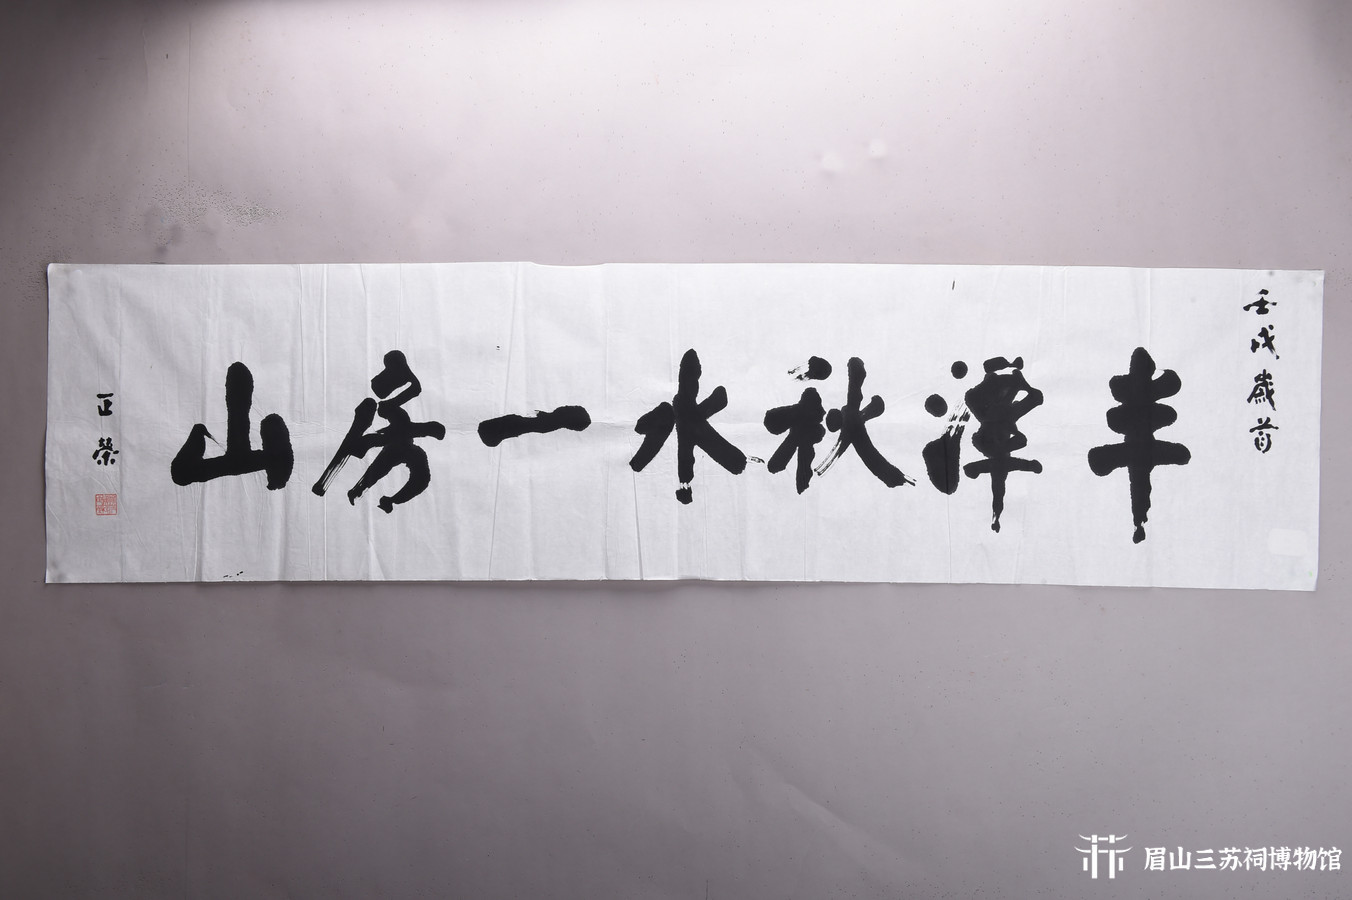 壬戌岁首
丰潭秋水一房山
正荣
眉山三苏祠博物馆